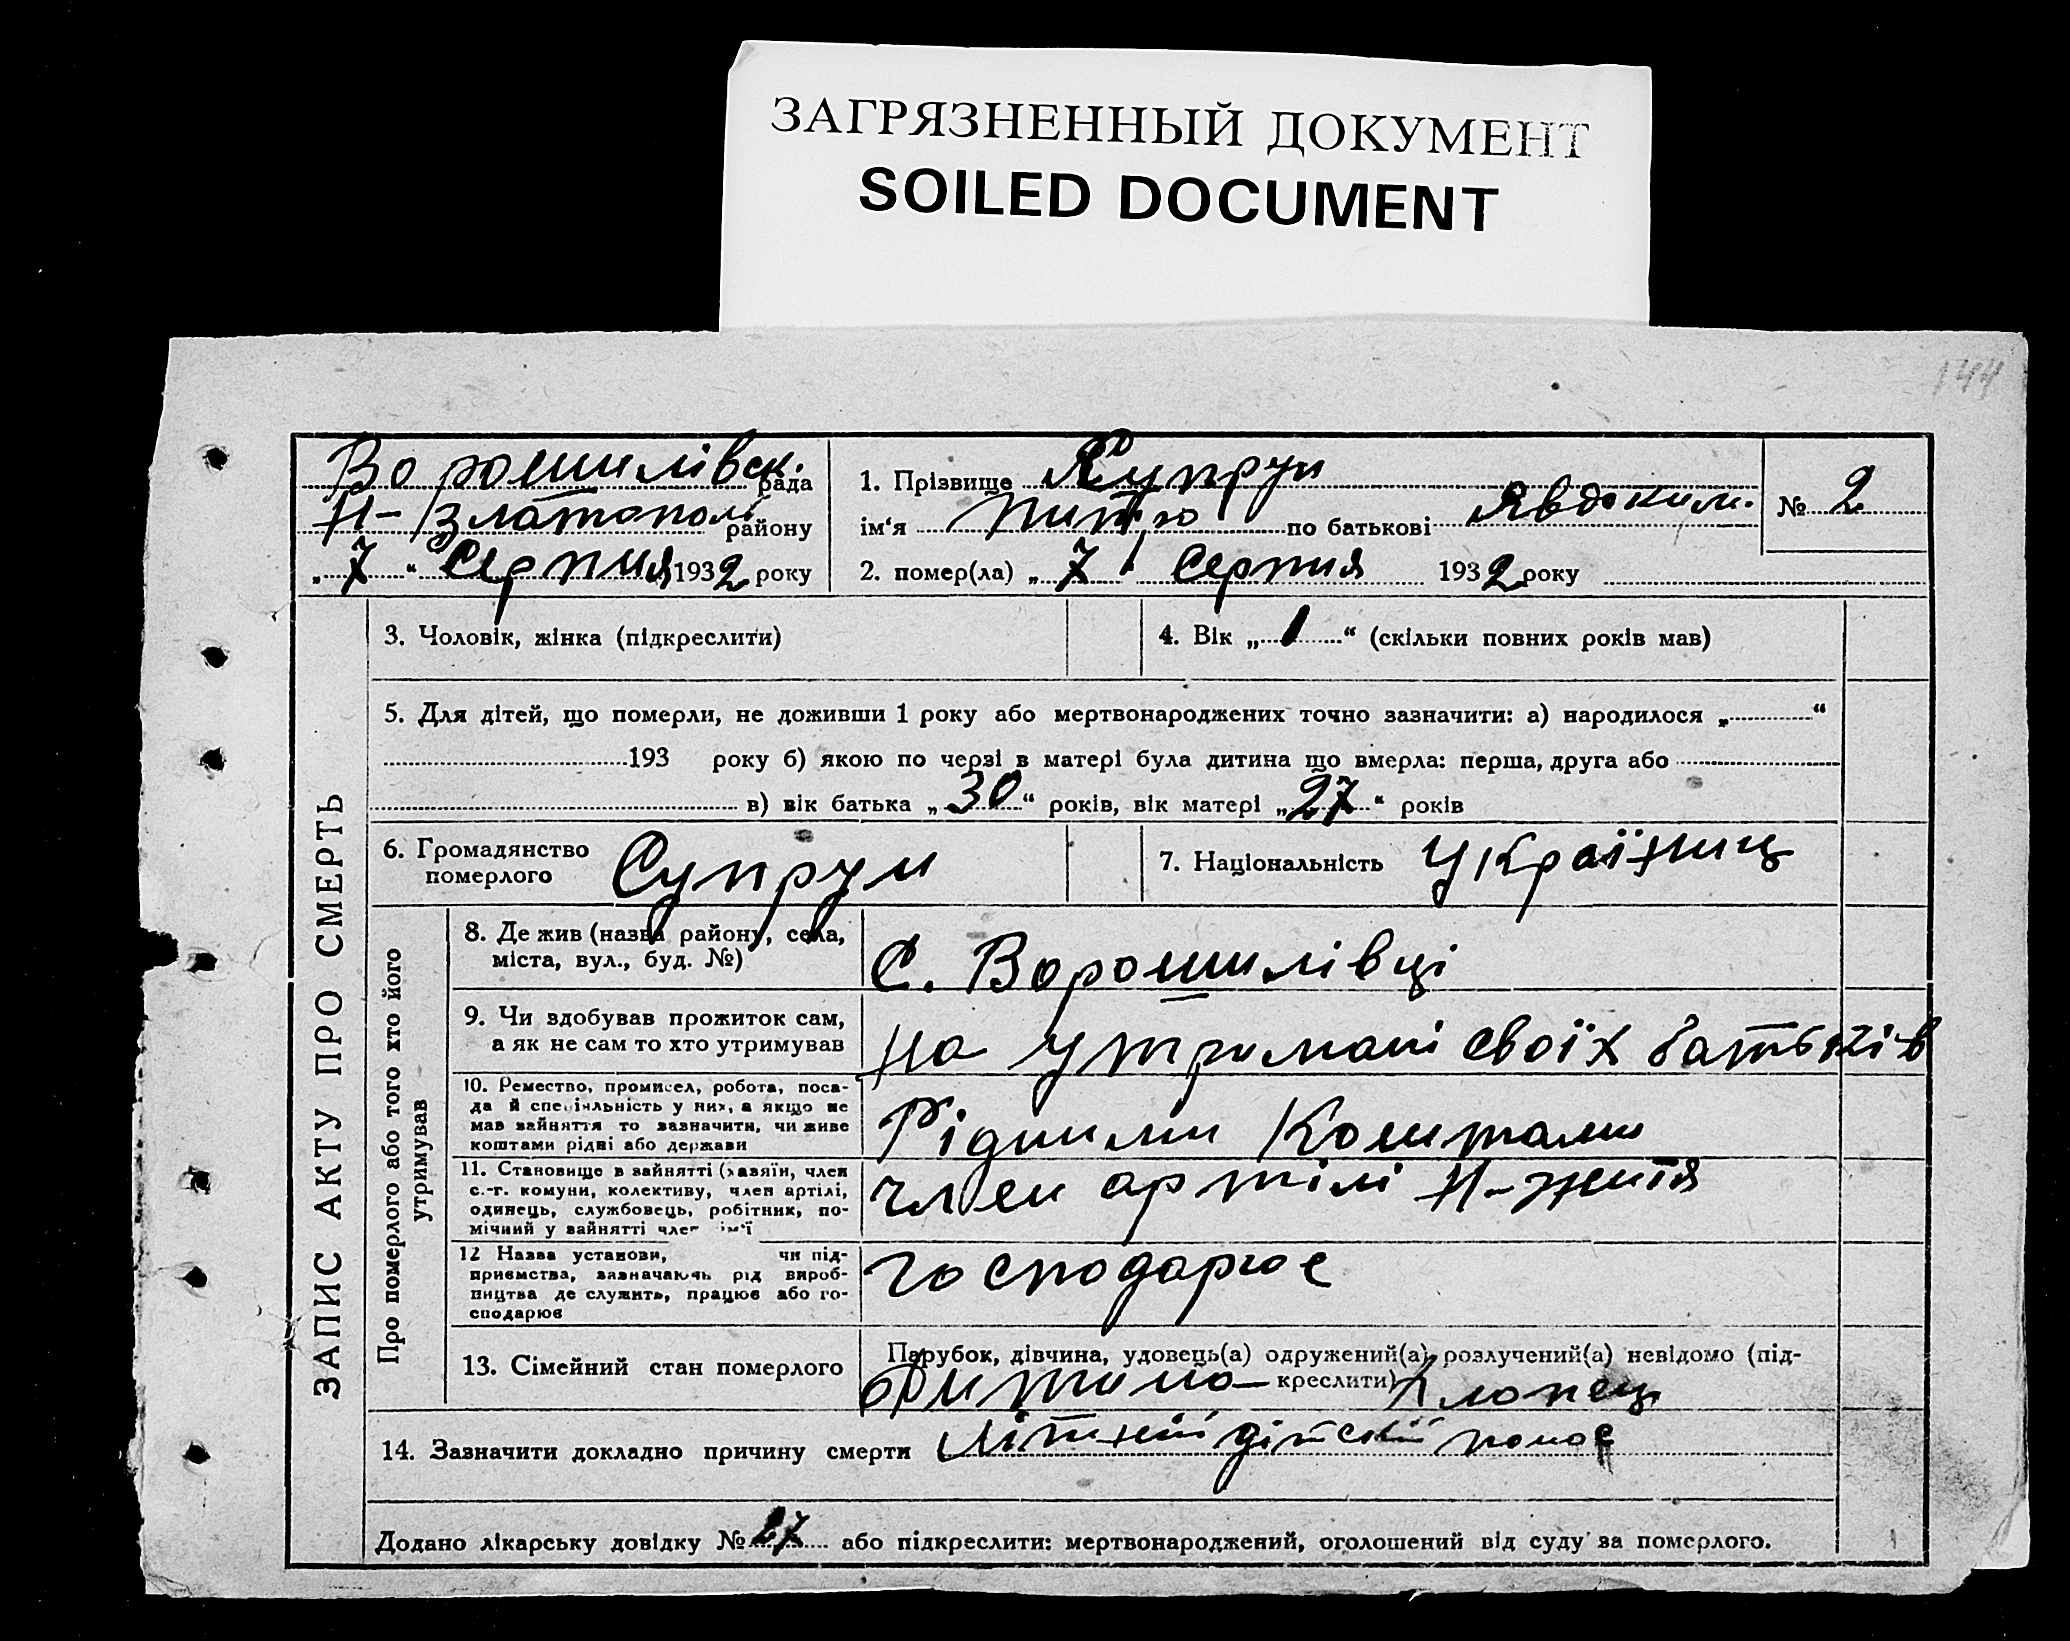 ЗАГРЯЗНЕННЫЙ ДОКУМЕНТ
SOILED DOCUMENT
144
Ворошилівск. рада
Н-Златополь району
„7“ Серпня 1932 року
1. Прізвище Супрун
ім‘я по батькові Явдоким.
№ 2
2. помер(ла) „7“ Серпня 1932 року
ЗАПИС АКТУ ПРО СМЕРТЬ
3. Чоловік, жінка (підкреслити)
4. Вік „1“ (скільки повних років мав)
5. Для дітей, що померли, не доживши 1 року або мертвонароджених точно зазначити: а) народилося „ “
193 року б) якою по черзі в матері була дитина що вмерла: перша, друга або
в) вік батька „30“ років, вік матері „27“ років
6. Громадянство
померлого
Супрун
7. Національність Україниц
Про померлого або того хто його
утримував
8. Де жив (назва району, села,
міста, вул., буд. №)
С. Ворошилівці
9. Чи здобував прожиток сам,
а як не сам то хто утримував
на утримані своїх батьків
10. Ремество, промисел, робота, поса-
да й спеціяльність у них, а якщо не
мав зайняття то зазначити, чи живе
коштами рідні або держави
Рідними Коштами
11. Становище в зайнятті (хазяїн, член
с.-г. комуни, колективу, член артілі,
одинець, службовець, робітник, по-
мічний у зайнятті член сім‘ї
член артілі Н-життя
12 Назва установи, чи під-
приємства, зазначаючь рід вироб-
ництва де служить, працює або го-
сподарює
господарює
13. Сімейний стан померлого
Парубок, дівчина, удовець(а) одружений(а) розлучений(а) невідомо (під-
креслити)
Дитина – хлопец
14. Зазначити докладно причину смерти Літній дітскій понос
Додано лікарську довідку № 27 або підкреслити: мертвонароджений, оголошений від суду за померлого.